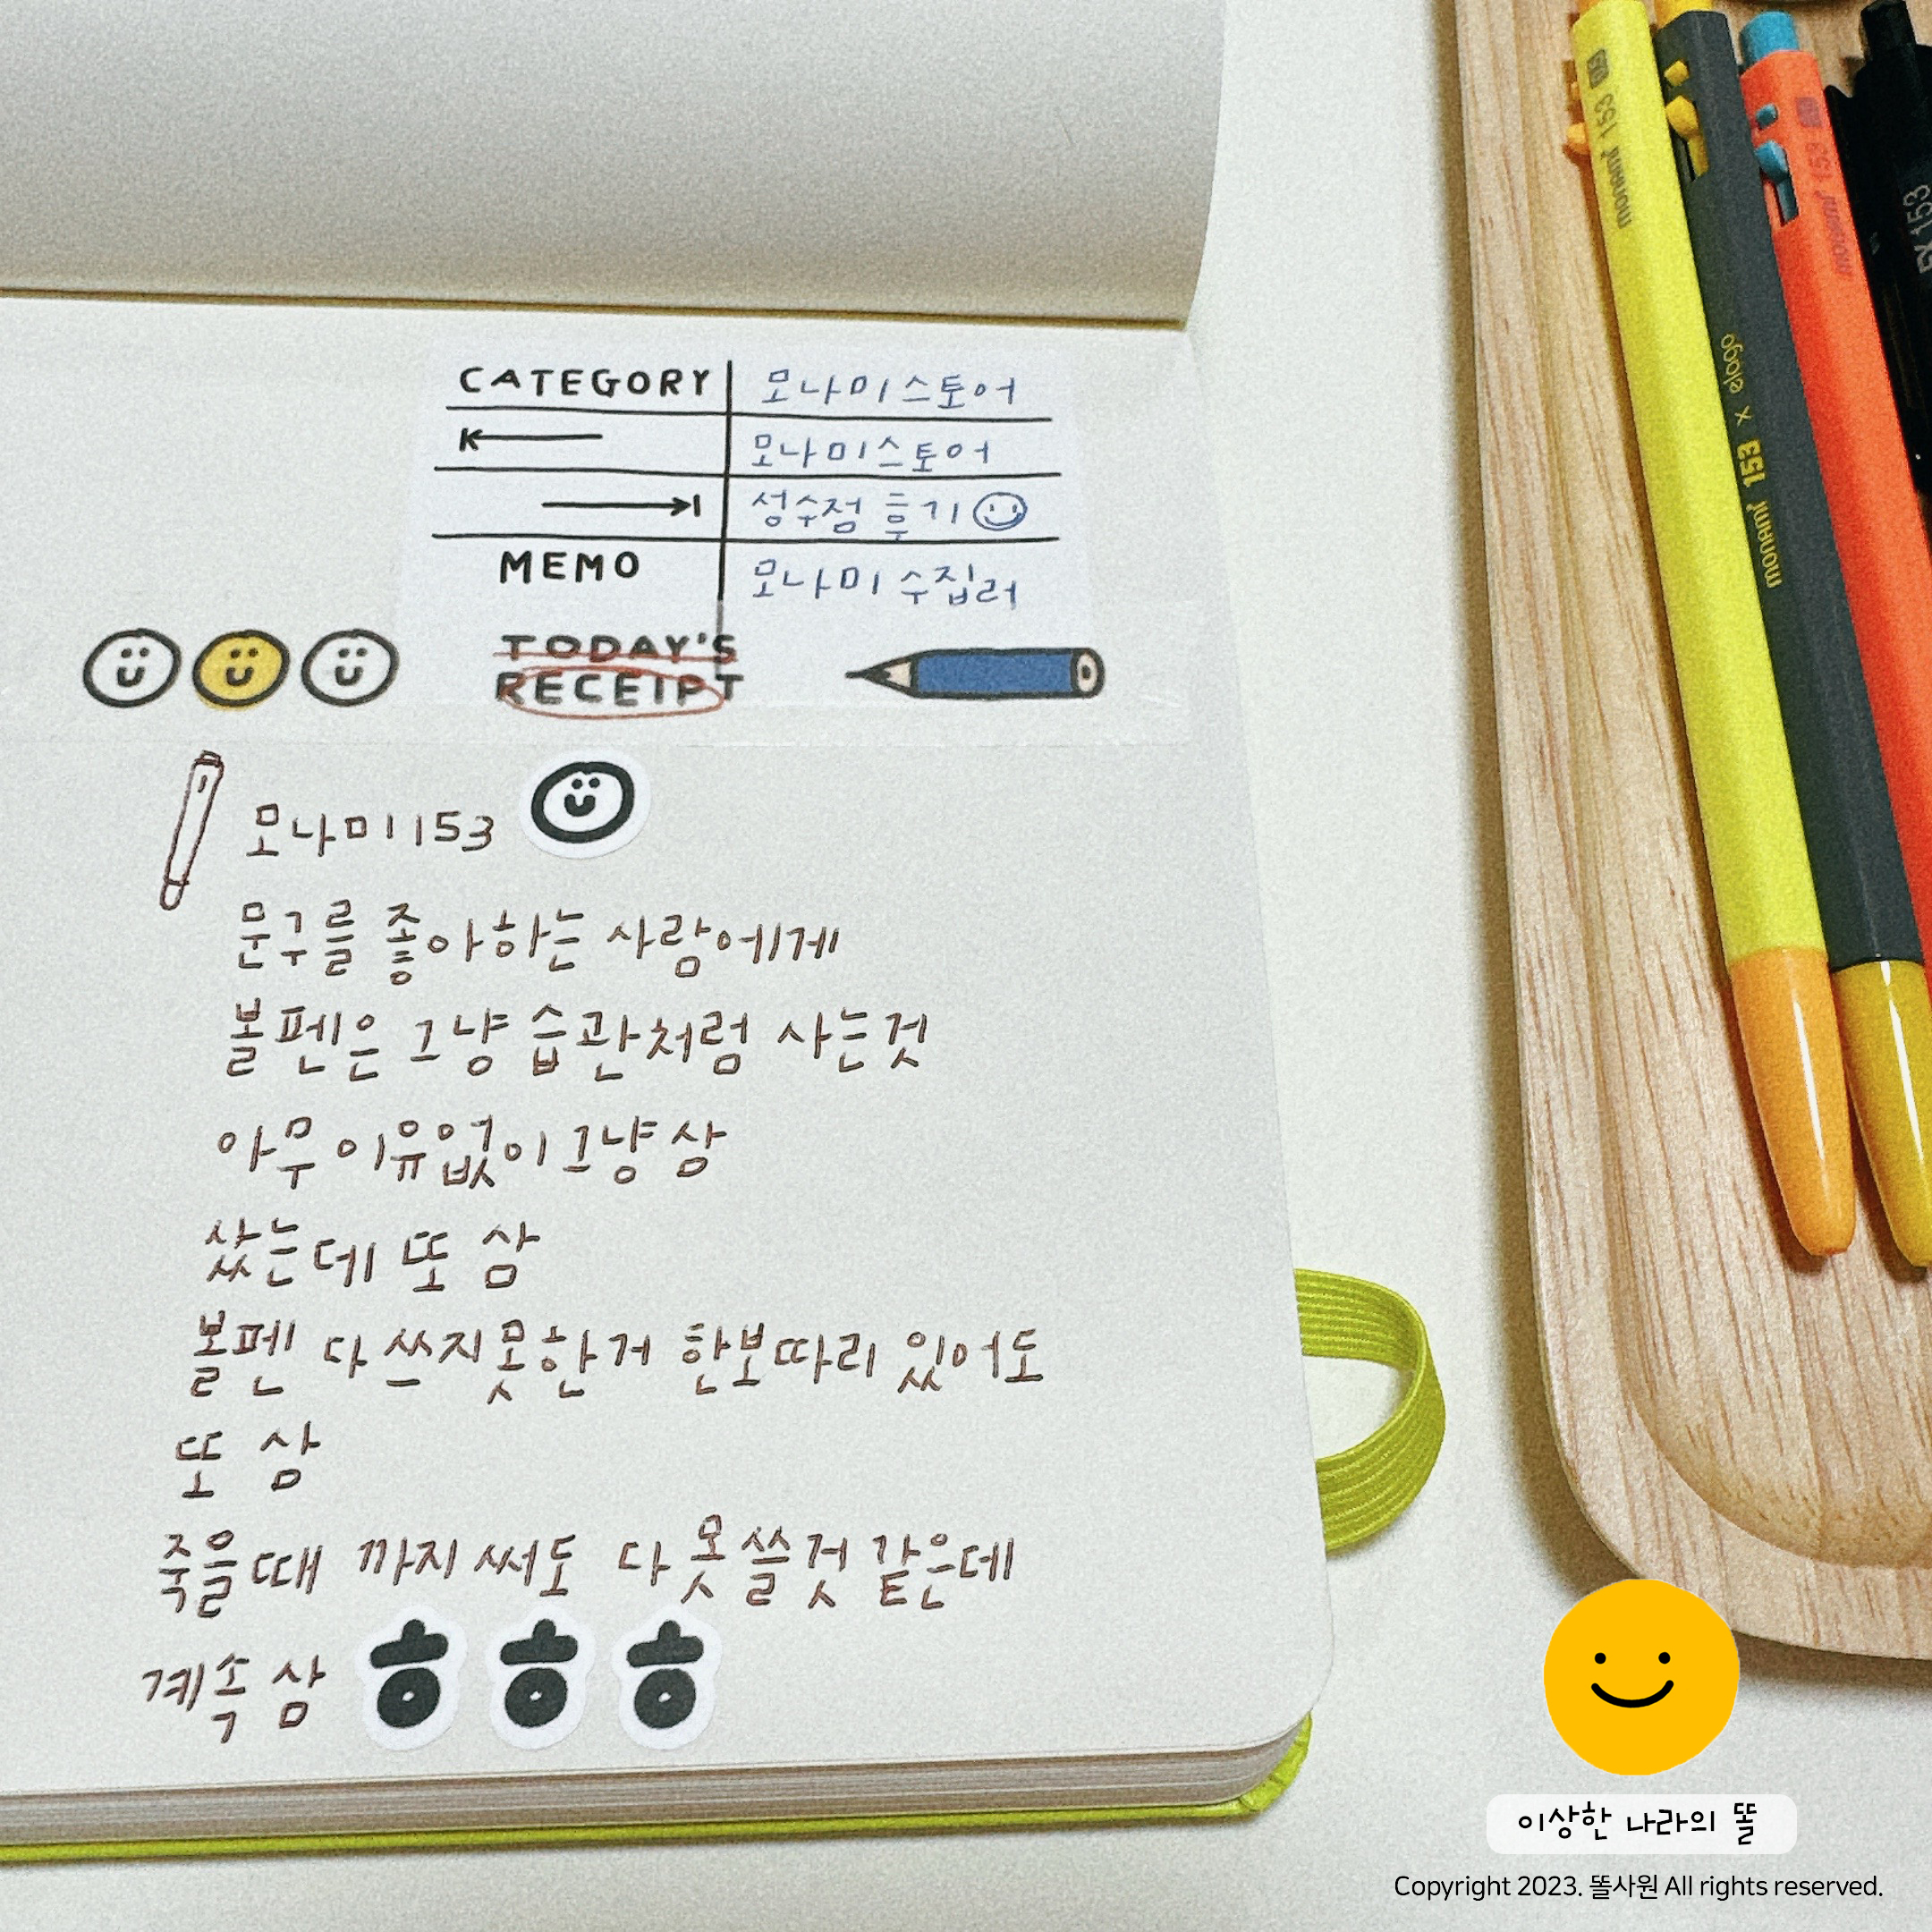 CATEGORY 모나미스토어
모나미스토어
성수점 후기
MEMO 모나미 수집러
TODAY'S
RECEIPT
모나미 153
문구를 좋아하는 사람에게
볼펜은 그냥 습관처럼 사는것
아무 이유없이 그냥 삼
샀는데 또 삼
볼펜 다 쓰지 못한거 한보따리 있어도
또 삼
죽을때 까지 써도 다 못 쓸것 같은데
계속 삼 ㅎㅎㅎ
monami 153
monami 153 x elago
monami 153
153
이상한 나라의 똘
Copyright 2023. 똘사원 All rights reserved.